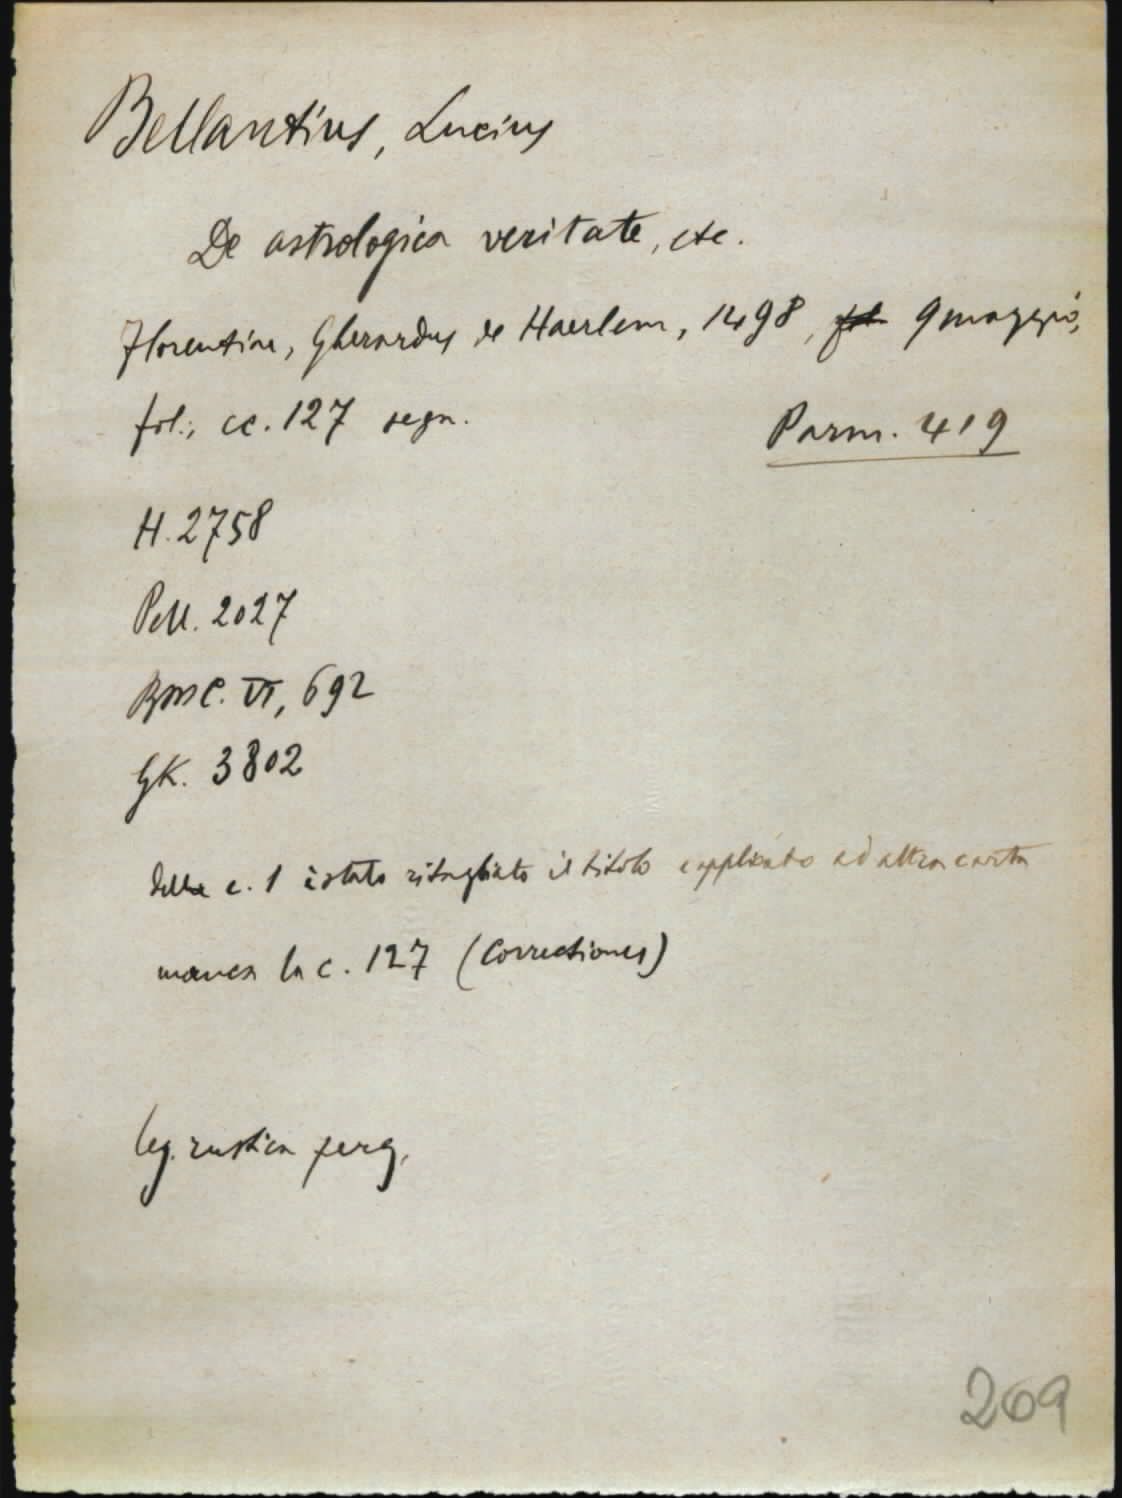 Bellantius, Lucius
De astrologica veritate, etc.
Florentiae, Gherardus de Haerlem, 1498, 9 maggio,
fol., cc. 127 segn.
Parm. 419
H. 2758
Pell. 2027
BMC. VI, 692
GK. 3802
della c. 1 è stato ritagliato il titolo e applicato ad altra carta
manca la c. 127 (Correctiones)
leg. rustica perg.
269